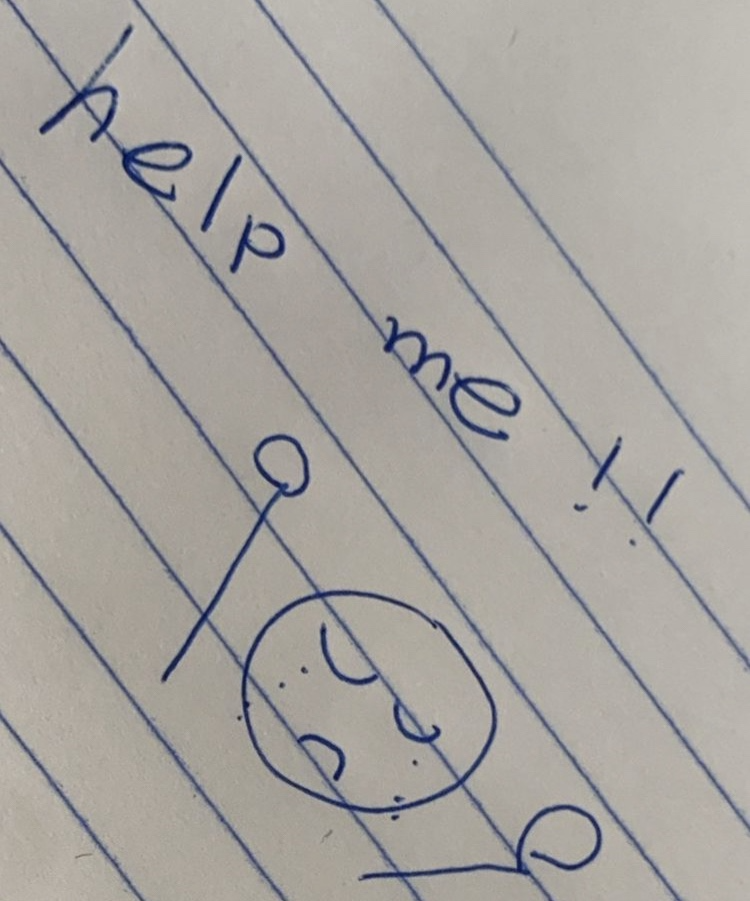 help me !!